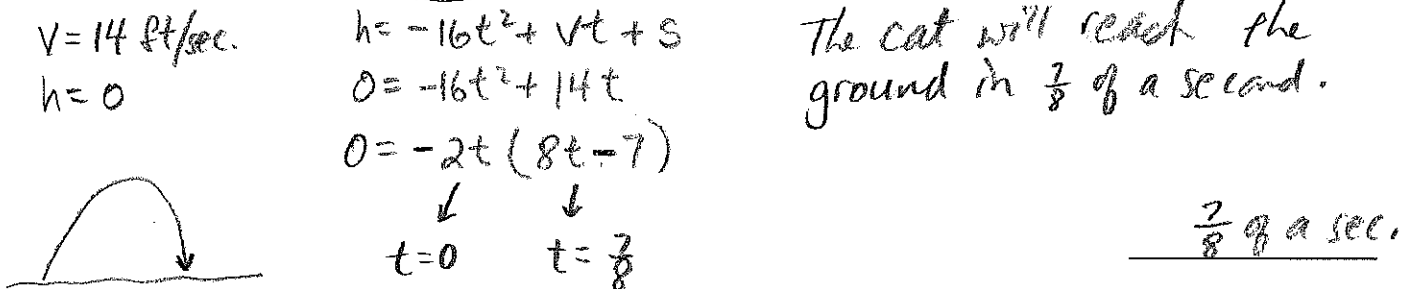 V=14 ft/sec.
h=0
h=-16t²+ Vt + S
0=-16t²+ 14t
0=-2t(8t-7)
t=0 t=7/8
The cat will reach the
ground in 7/8 of a second.
7/8 of a sec.